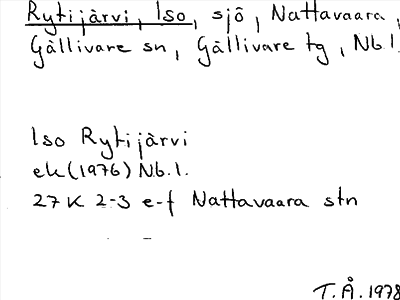 Rytijärvi, Iso, sjö, Nattavaara,
Gällivare sn, Gällivare tg, Nb.l.
Iso Rytijärvi
ek (1976) Nb.l.
27 K 2-3 e-f Nattavaara stn
T.Å. 1978